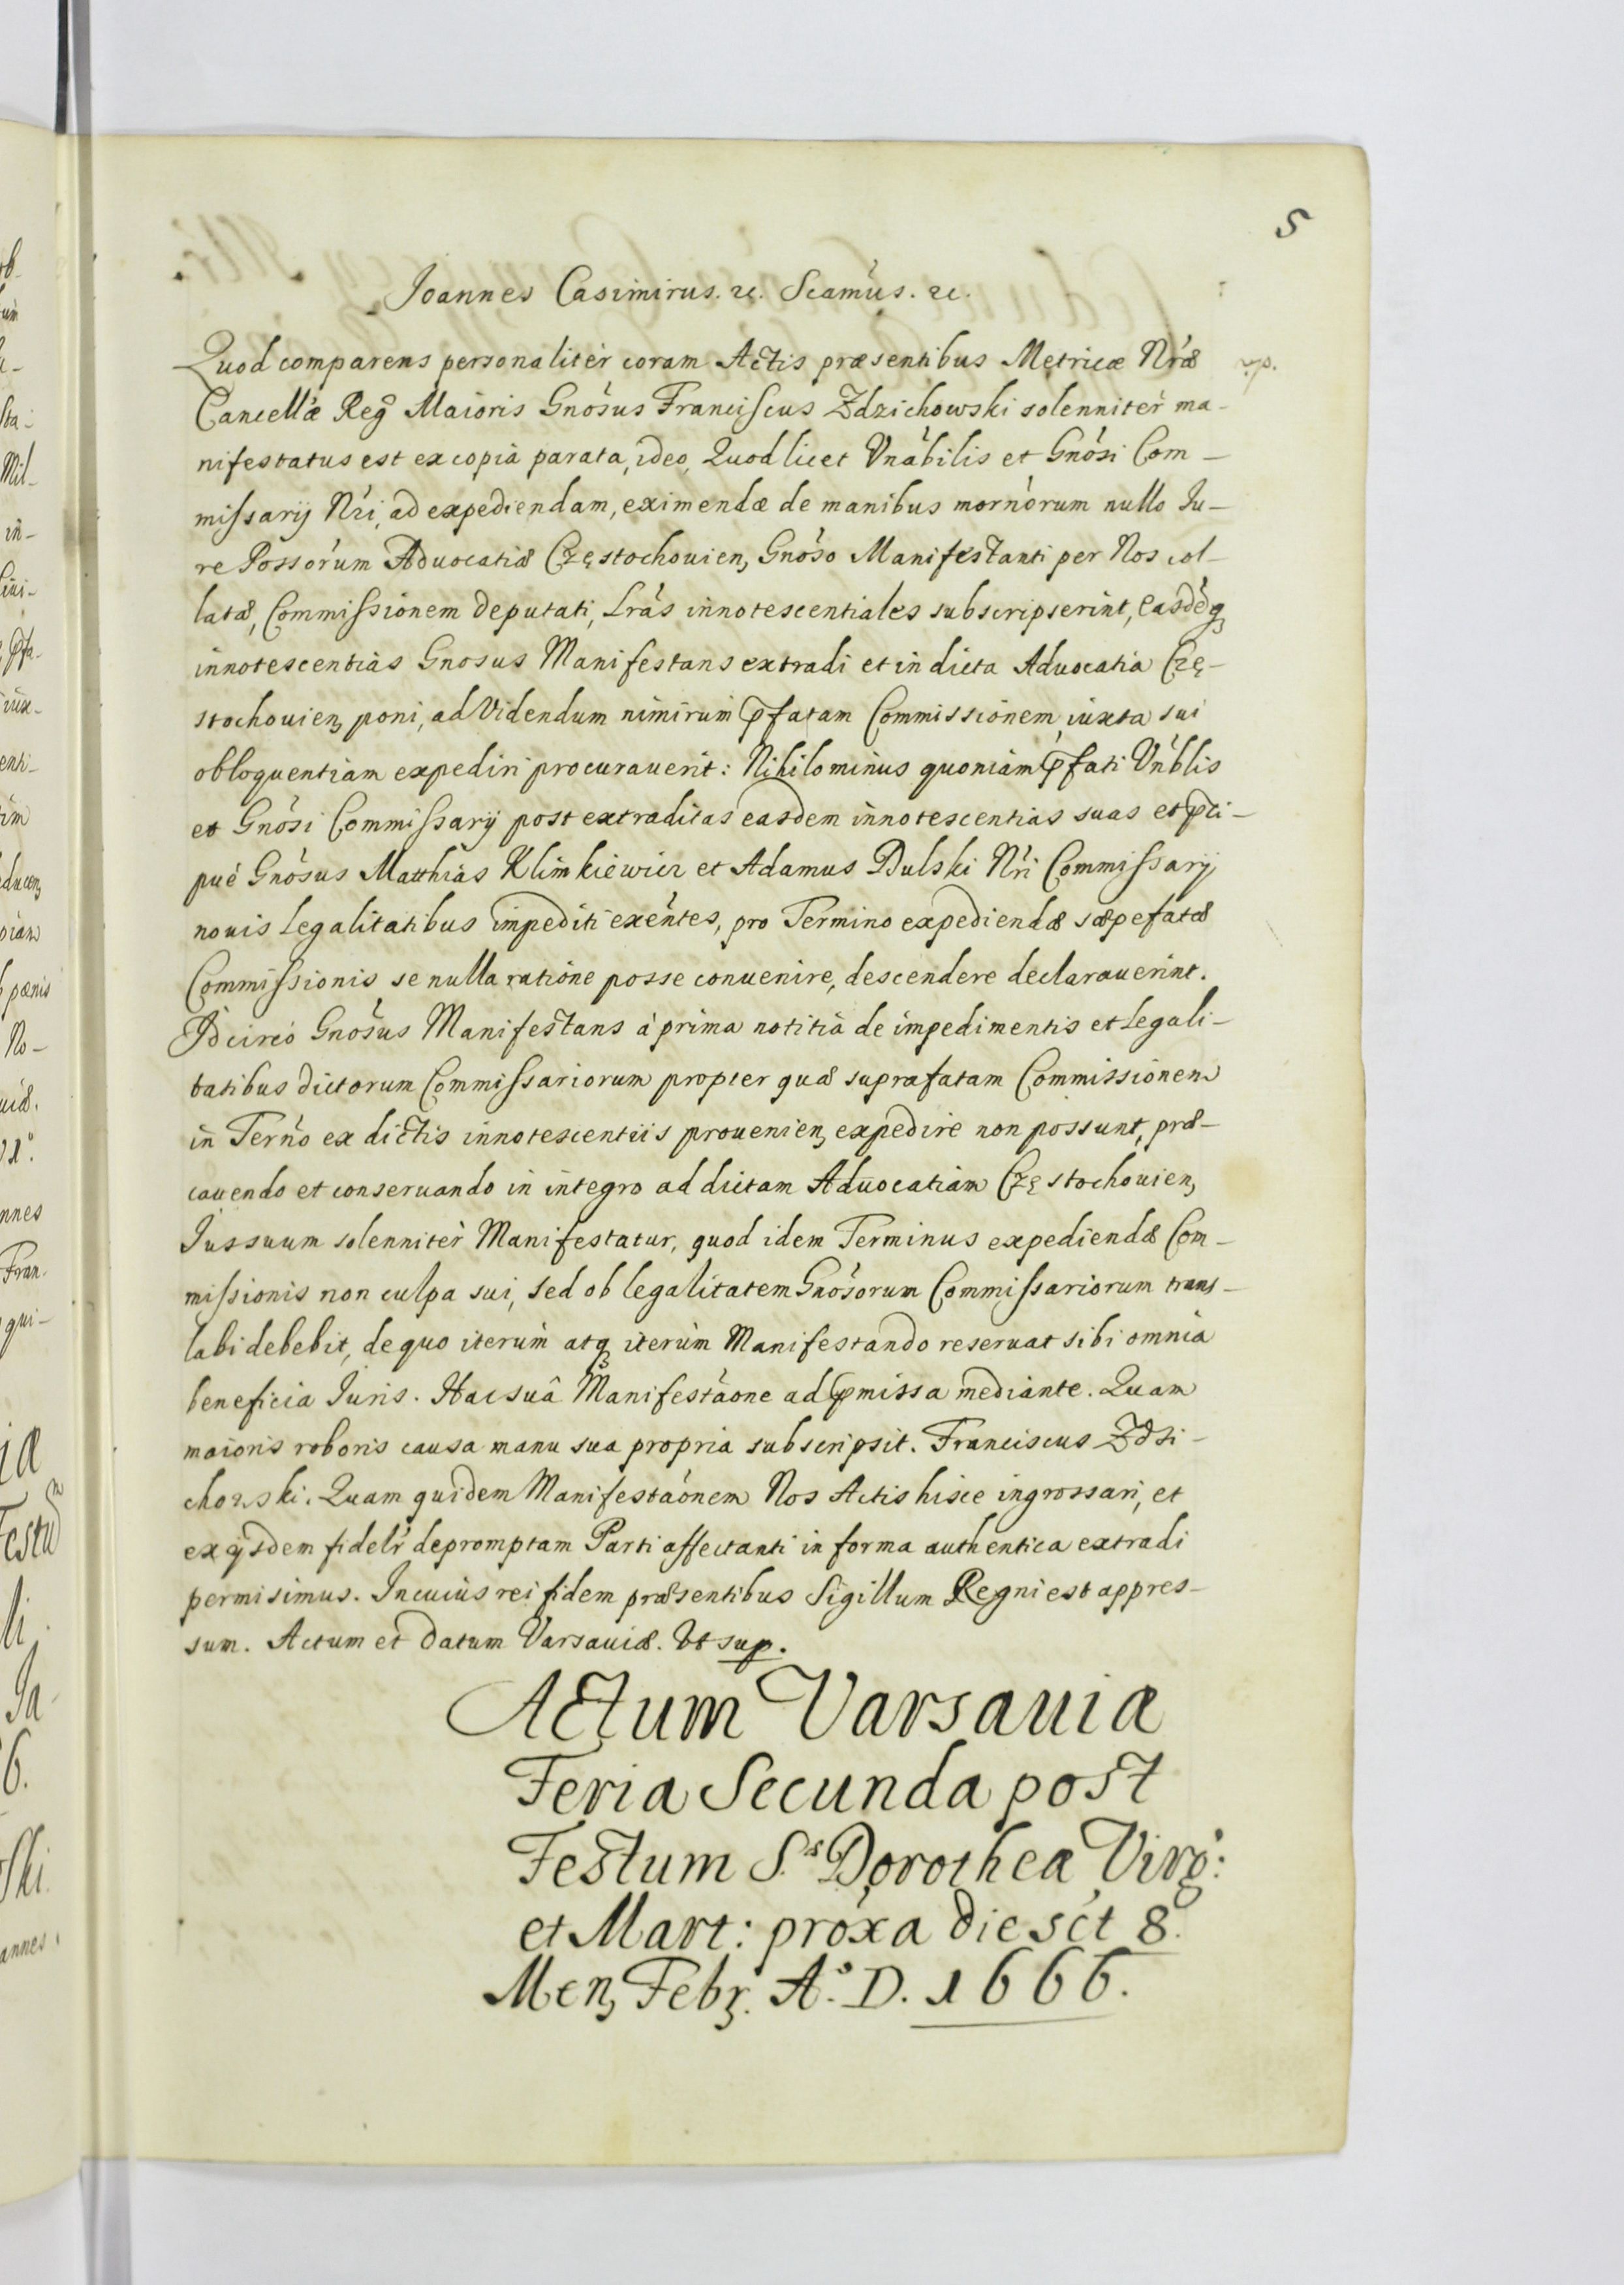 5
Joannes Casimirus. &c. Scamús. &c.
Quod comparens personalitèr coram Actis præsentibus Metricæ Nræ
Cancellæ Reg Maioris Gnósus Franciscus Zdzichowski solennitèr ma-
nifestatus est ex copia parata, ideo, Quod licet Vnábilis et Gnósi Com-
missarij Nri, ad expediendam, eximendæ de manibus mornórum nullo Ju-
re Possórum Aduocatiæ Częstochouien, Gnóso Manifestanti per Nos col-
latæ, Commissionem deputati, Lrás innotescentiales subscripserint, easdéq
innotescentias Gnosus Manifestans extradi et in dicta Aduocatia Czę-
stochouien, poni, ad Videndum nimirum pfatam Commissionem iuxta sui
obloquentiam expediri procurauerit: Nihilominus quoniam pfati Vnblis
et Gnósi Commissarij post extraditas easdem innotescentias suas et pci-
pué Gnósus Matthias Klimkiewicz et Adamus Dulski Nri Commissarij
nouis legalitatibus impediti exéntes, pro Termino expediendæ sæpefatæ
Commissionis se nulla ratione posse conuenire, descendere declarauerint.
Idcircó Gnósus Manifestans á prima notitia de impedimentis et legali-
tatibus dictorum Commissariorum propter quæ suprafatam Commissionem
in Terno ex dictis innotescentiis prouenien, expedire non possunt, præ-
cauendo et conseruando in integro ad dictam Aduocatiam Częstochouien,
Jus suum solennitèr Manifestatur, quod idem Terminus expediendæ Com-
missionis non culpa sui, sed ob legalitatem Gnósorum Commissariorum trans-
labi debebit, de quo iterúm atq iterúm Manifestando reseruat sibi omnia
beneficia Juris. Hac suâ Manifestáone ad pmissa mediante. Quam
maioris roboris causa manu sua propria subscripsit. Franciscus Zdzi-
chowski. Quam quidem Manifestáonem Nos Actis hisce ingrossari, et
ex ijsdem fidelr depromptam Parti affectanti in forma authentica extradi
permisimus. In cuius rei fidem præsentibus Sigillum Regni est appres-
sum. Actum et Datum Varsauiæ. Vt sup.
Actum Varsauiæ
Feria Secunda post
Festum S.s Dorotheæ Virg:
et Mart: próxa die sct 8.
Men, Febr. A.o D. 1666.